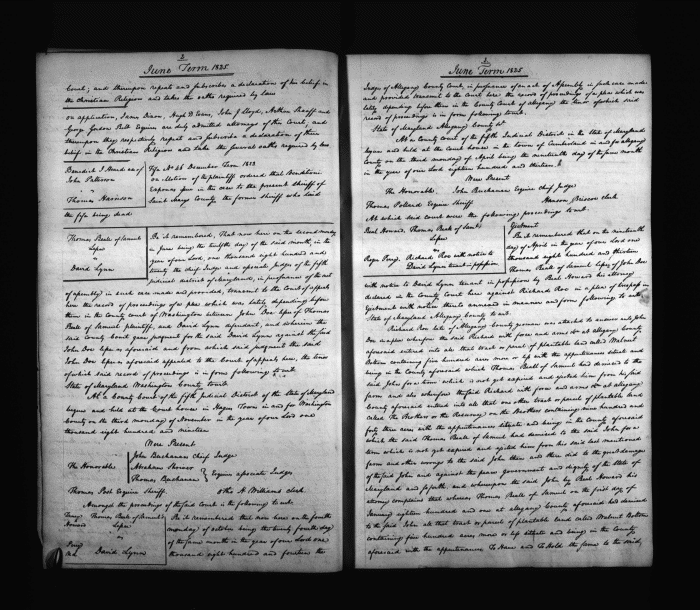 2
June Term 1825
Court, and thereupon repeat and subscribe a declaration of his belief in
the Christian Religion and takes the oaths required by law
on application, James Dixon, Hugh D Evans, John J Lloyd, Arthur Shaaff and
George Gordon Belt Esquires are duly admitted attorneys of this Court, and
thereupon they respectively repeat and subscribe a declaration of their
belief in the Christian Religion and take the several oaths required by law
Benedict I Heard use of
John Patterson
vs
Thomas Harrison
the fifa being dead
Fifa No 26 December Term 1823
on Motion of the plaintiff ordered that Venditioni
exponas give in the case to the present sheriff of
Saint Marys County the former sheriff who laid
Thomas Beall of Samuel
Lessee
vs
David Lynn
Be it remembered, That now here on the second monday
in June being the twelfth day of the said month, in the
year of our Lord, one thousand eight hundred and
twenty the chief Judge and associate Judges of the fifth
judicial district of Maryland, in pursuance of the act
of assembly in such case made and provided, transmit to the Court of appeals
here the record of proceedings of a plea which was lately depending before
them in the County court of Washington between John Doe lessee of Thomas
Beall of Samuel plaintiff, and David Lynn defendant, and wherein the
said County Court gave judgment for the said David Lynn against the said
John Doe lessee as aforesaid and from which said judgment the said
John Doe lessee as aforesaid appealed to the Court of appeals here, the tenor
of which said record of proceedings is in form following to wit
State of Maryland Washington County towit
At a County Court of the fifth Judicial District of the State of Maryland
begun and held at the Court house in Hagers Town in and for Washington
County on the third monday of November in the year of our Lord one
thousand eight hundred and nineteen
Were Present
The Honorables
John Buchanan Chief Judge
Abraham Shriver
Thomas Buchanan
Esquires associate Judges
Thomas Post Esquire Sheriff
Otho H Williams clerk
Amongst the proceedings of the said Court is the following to wit
Perry Thomas Beall of Samuel
Howard Lessee
vs
Price
ad. David Lynn
Be it remembered that now here on the fourth
monday of October being the twenty fourth day
of the same month in the year of our Lord one
thousand eight hundred and fourteen the
June Term 1825
Judge of Allegany County Court, in pursuance of an act of Assembly in such case made
and provided transmit to the Court here the record of proceedings of a plea which was
lately depending before them in the County Court of Allegany the tenor of which said
record of proceedings is in form following to wit
State of Maryland Allegany County sct
At a County Court of the fifth Judicial District in the State of Maryland
begun and held at the Court house in the town of Cumberland in and for allegany
County on the third monday of April being the nineteenth day of the same month
in the year of our Lord eighteen hundred and thirteen
Were Present
The Honorable John Buchanan Esquire chief Judge
Thomas Pollard Esquire Sheriff
Hanson Briscoe clerk
At which said Court were the following proceedings to wit
Beal Howard, Thomas Beall of Saml
Lessee
vs
Roger Perry. Richard Roe with notice to
David Lynn tenant in possession
Ejectment
Be it remembered that on the nineteenth
day of April in the year of our Lord one
thousand eight hundred and thirteen
Thomas Beall of Samuel lessee of John Doe
with notice to David Lynn tenant in possession by Beal Howard his attorney
declared in the County Court here against Richard Roe in a plea of trespass in
Ejectment with notice thereto annexed in manner and form following to wit
State of Maryland Allegany County to wit
Richard Roe late of Allegany County yeoman was attached to answer unto John
Doe in a plea wherefore the said Richard with force and arms &c at allegany County
aforesaid entered into all that tract or parcel of plantable land called Walnut
Bottom containing five hundred acres more or less with the appurtenances situate and
being in the County aforesaid which Thomas Beall of Samuel had demised to the
said John for a term which is not yet expired and ejected him from his said
farm and also wherefore the said Richard with force and arms &c at allegany
County aforesaid entered into all that one other tract or parcel of plantable land
called The Brothers or the Resurvey on the Brothers containing nine hundred and
forty three acres with the appurtenances situate and being in the County aforesaid
which the said Thomas Beall of Samuel had demised to the said John for a
term which is not yet expired and ejected him from his said last mentioned
farm and other wrongs to the said John then and there did to the great damage
of the said John and against the peace government and dignity of the state of
Maryland and so forth and whereupon the said John by Beal Howard his
attorney complains that whereas Thomas Beall of Samuel on the first day of
January eighteen hundred and one at allegany County aforesaid had demised
to the said John all that tract or parcel of plantable land called Walnut Bottom
containing five hundred acres more or less situate and being in the County
aforesaid with the appurtenances To Have and To Hold the same to the said,